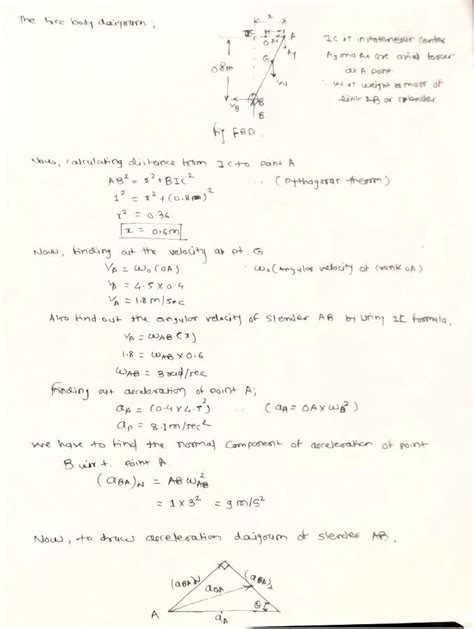 The free body daigoram;
x
IC
A
OA
Ay
G
0.8m
W
VB
B
B
fig FBD.
IC is instoteneour center
Ay and Ax are axial forcer
at A point
∴ W is weight or mass of
link AB or slender
Now, calculating distance from IC to point A
AB² = x² + BIC² ... (pythagorar theorem)
1² = x² + (0.8m)²
x² = 0.36
x = 0.6m
Now, finding out the velocity at pt. G
VA = ω0 (OA) ω0 (angular velocity of crank OA)
VA = 4.5 x 0.4
VA = 1.8 m/sec
Also find out the angular velocity of slender AB by using IC formula,
VA = ωAB (x)
1.8 = ωAB x 0.6
ωAB = 3 rad/rec
finding out acceleration of point A;
aA = (0.4 x 4.5²) .. (aA = OA x ω0²)
ap = 8.1 m/sec²
we have to find the normal component of acceleration of point
B w.r.t. point A.
(aBA)N = AB ωAB²
= 1 x 3² = 9 m/s²
Now, to draw acceleration daigoram of slender AB,
(aBA)N
aBA
(aBA)t
A
θ
aA